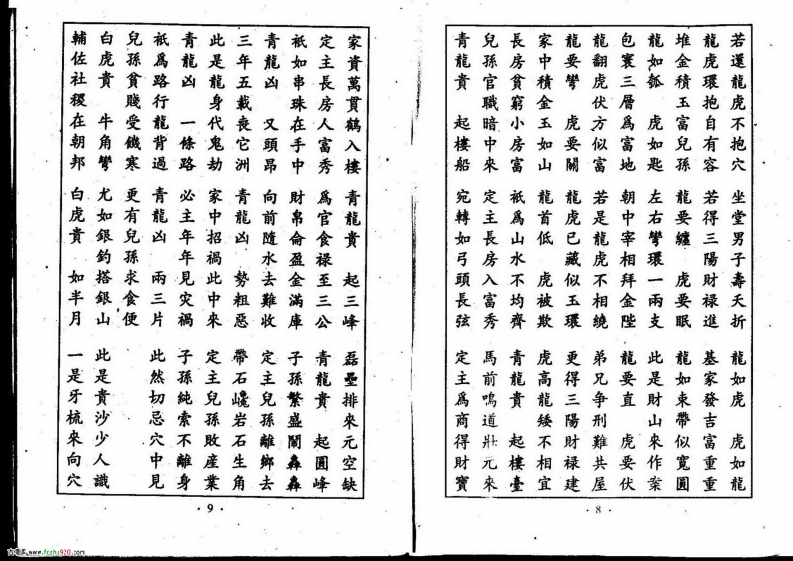 若還龍虎不抱穴 坐堂男子壽夭折 龍如虎 虎如龍
龍虎環抱自有容 若得三陽財祿進 基家發吉富重重
堆金積玉富兒孫 龍要纏 虎要眠 龍如束帶似寬圓
龍如瓠 虎如匙 左右彎環一兩支 此是財山來作案
包裹三層為富地 朝中宰相拜金陛 龍要直 虎要伏
龍翻虎伏方似富 若是龍虎不相繞 弟兄爭刑難共屋
龍要彎 虎要關 龍虎已藏似玉環 更得三陽財祿建
家中積金玉如山 龍首低 虎被欺 虎高龍矮不相宜
長房貧窮小房富 祇為山水不均齊 青龍貴 起樓臺
兒孫官職暗中來 定主長房入富秀 馬前鳴道壯元來
青龍貴 起樓船 宛轉如弓頭長弦 定主為商得財寶
· 8 ·
家資萬貫鶴入樓 青龍貴 起三峰 磊壘排來元空缺
定主長房人富秀 為官食祿至三公 青龍貴 起圓峰
祇如串珠在手中 財帛侖盈金滿庫 子孫繁盛鬧轟轟
青龍凶 又頭昂 向前隨水去難收 定主兒孫離鄉去
三年五載喪它洲 青龍凶 勢粗惡 帶石巉岩石生角
此是龍身代鬼劫 家中招禍此中來 定主兒孫敗產業
青龍凶 一條路 必主年年見灾禍 子孫純索不離身
祇為路行龍背過 青龍凶 兩三片 此然切忌穴中見
兒孫貧賤受饑寒 更有兒孫求食便
白虎貴 牛角彎 尤如銀鈎搭銀山 此是貴沙少人識
輔佐社稷在朝邦 白虎貴 如半月 一是牙梳來向穴
· 9 ·
www.fczhu920.com